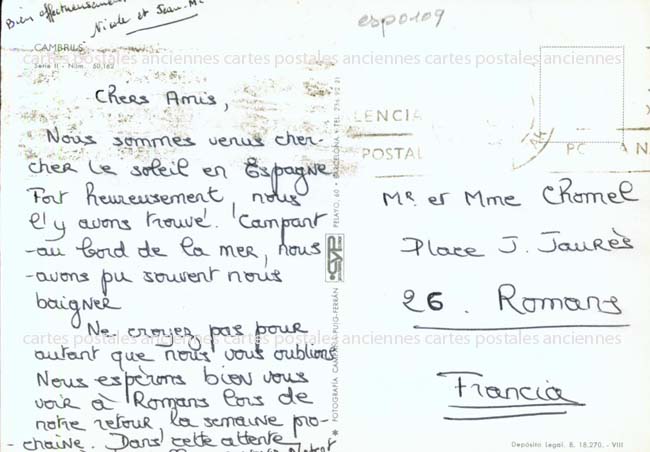 Bien affectueusement
Nicole et Jean-M
esp0109
CAMBRILS
Serie II - Núm. 60.162
cartes postales anciennes cartes postales anciennes cartes postales anciennes
Chers Amis,
Nous sommes venus cher-
cher le soleil en Espagne
Fort heureusement, nous
l'y avons trouvé. Campant
-au bord de la mer, nous
-avons pu souvent nous
baigner
Ne croyez pas pour
autant que nous vous oublions
Nous espérons bien vous
voir à Romans lors de
notre retour, la semaine pro-
-chaine. Dans cette attente
cartes postales anciennes cartes postales anciennes cartes postales anciennes
FOTOGRAFÍA CAMPAÑÁ-PUIG-FERRÁN
CYP
PELAYO, 60 • BARCELONA
LENCIA
POSTAL
PO
AN
Mr et Mme Chomel
Place J. Jaurès
26. Romans
Francia
Depósito Legal. B. 18.270. - VIII